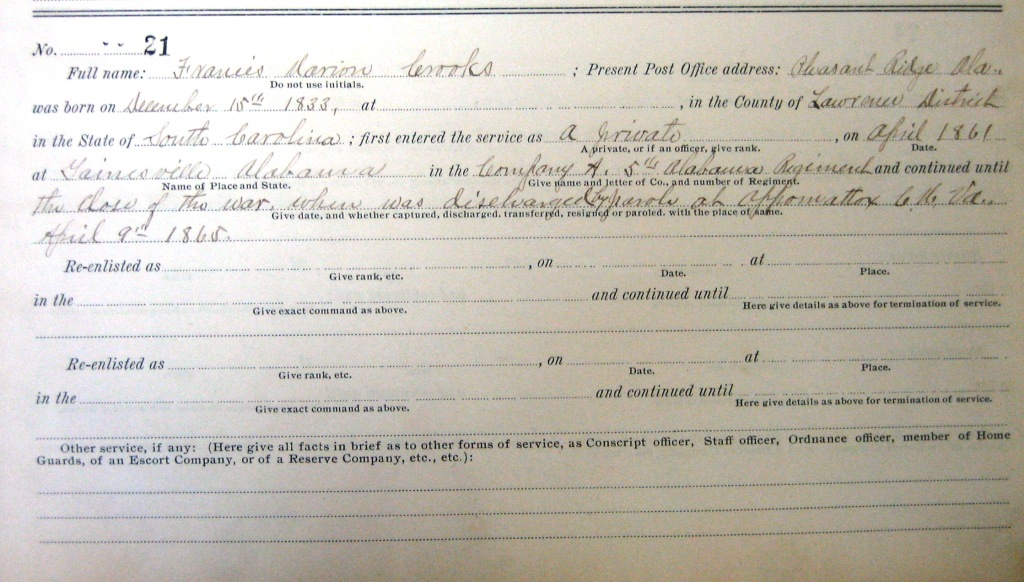 No. 21
Full name: Francis Marion Crooks ; Present Post Office address: Pleasant Ridge Ala.
Do not use initials.
was born on December 15th 1833, at , in the County of Lawrence District
in the State of South Carolina ; first entered the service as a private , on April 1861
A private, or if an officer, give rank. Date.
at Gainesville Alabama in the Company A. 5th Alabama Regiment and continued until
Name of Place and State. Give name and letter of Co., and number of Regiment.
the close of the war. when was discharged by parole at Appomattox C.H. Va.
Give date, and whether captured, discharged, transferred, resigned or paroled, with the place of same.
April 9th 1865.
Re-enlisted as , on at
Give rank, etc. Date. Place.
in the and continued until
Give exact command as above. Here give details as above for termination of service.
Re-enlisted as , on at
Give rank, etc. Date. Place.
in the and continued until
Give exact command as above. Here give details as above for termination of service.
Other service, if any: (Here give all facts in brief as to other forms of service, as Conscript officer, Staff officer, Ordnance officer, member of Home
Guards, of an Escort Company, or of a Reserve Company, etc., etc.):